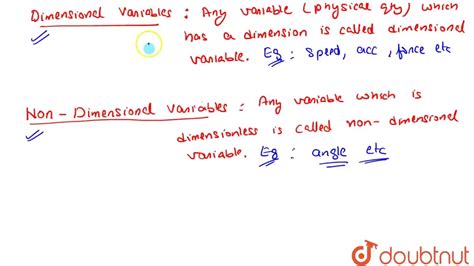 Dimensional Variables : Any variable (physical qty) which
has a dimension is called dimensional
variable. Eg : Speed, acc, force etc
Non-Dimensional Variables : Any variable which is
dimensionless is called non-dimensional
variable. Eg : angle etc
doubtnut